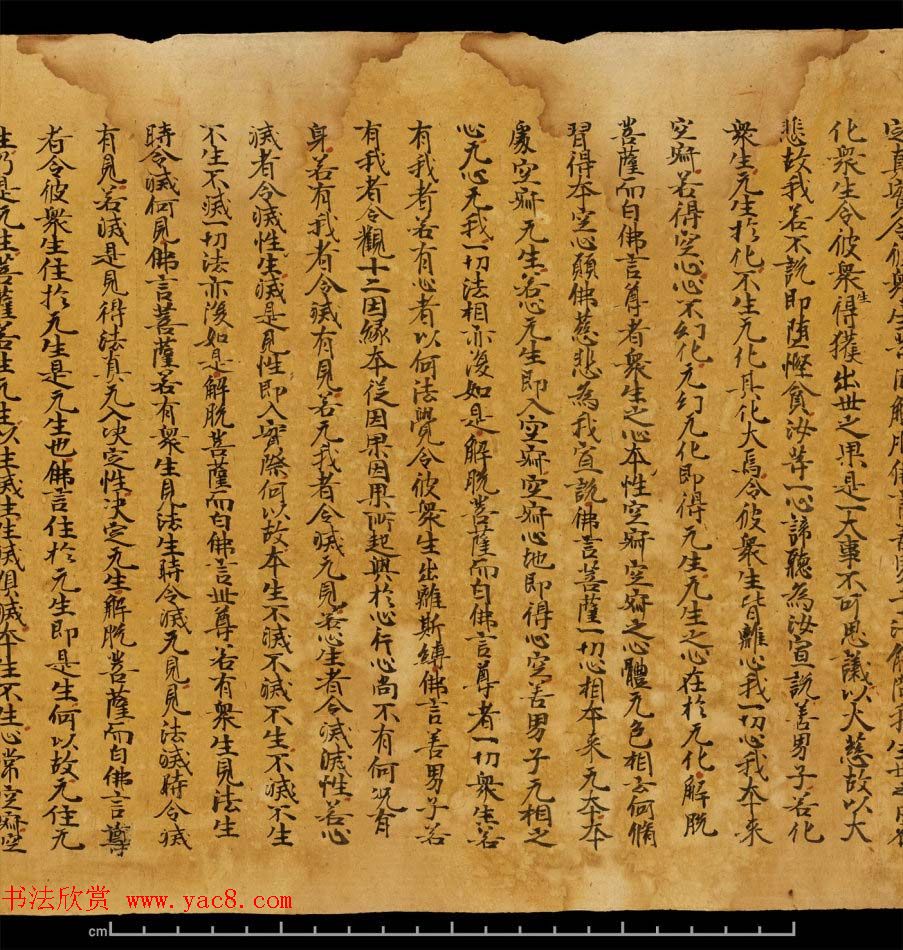 化衆生令彼衆生得獲出世之果是一大事不可思議以大慈故以大
悲故我若不說即堕慳貪汝䒭一心諦聽為汝宣說善男子若化
衆生无生於化不生无化其化大焉令彼衆生皆離心我一切心我本来
空㝛若得空心心不幻化无幻无化即得无生无生之心在於无化解脫
菩薩而白佛言尊者衆生之心本性空㝛空㝛之心體无色相云何脩
習得本空心願佛慈悲為我宣說佛言菩薩一切心相本来无本本
處空㝛无生若心无生即入空㝛空㝛心地即得心空善男子无相之
心无心无我一切法相亦復如是解脫菩薩而白佛言尊者一切衆生若
有我者若有心者以何法覺令彼衆生出離斯縛佛言善男子若
有我者令觀十二因緣本從因果因果所起興於心行心尚不有何况有
身若有我者令滅有見若无我者令滅无見若心生者令滅滅性若心
滅者令滅性生滅是見性即入實際何以故本生不滅不滅不生不滅不生
不生不滅一切法亦復如是解脫菩薩而白佛言世尊若有衆生見法生
時令滅何見佛言菩薩若有衆生見法生時令滅无見見法滅時令滅
有見若滅是見得法真无入决定性决定无生解脫菩薩而白佛言尊
者令彼衆生住於无生是无生也佛言住於无生即是生何以故无住无
生乃是无生菩薩若生无生以生滅生生滅俱滅本生不生心常空㝛空
书法欣赏 www.yac8.com
cm